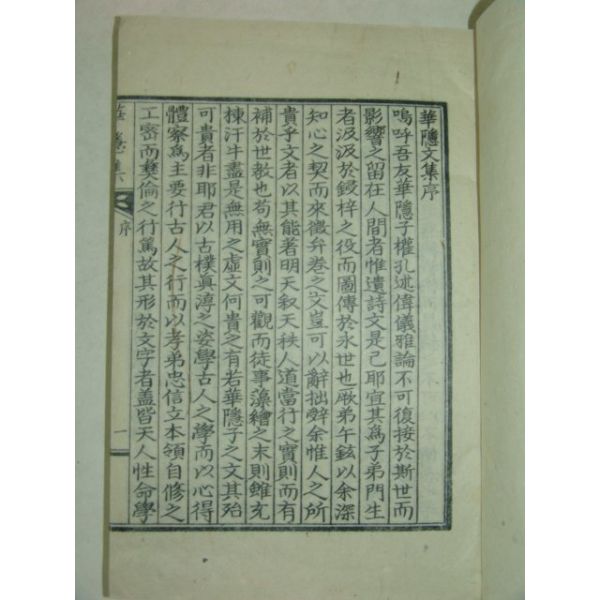 華隱文集序
嗚呼吾友華隱子權孔述偉儀雅論不可復接於斯世而
影響之留在人間者惟遺詩文是已耶宜其爲子弟門生
者汲汲於鋟梓之役而圖傳於永世也厥弟午鉉以余深
知心之契而來徵弁卷之文豈可以辭拙辭余惟人之所
貴乎文者以其能著明天叙天秩人道當行之實則而有
補於世敎也苟無實則之可觀而徒事藻繪之末則雖充
棟汗牛盡是無用之虛文何貴之有若華隱子之文其殆
可貴者非耶君以古樸眞淳之姿學古人之學而以心得
體察爲主要行古人之行而以孝弟忠信立本領自修之
工密而彛倫之行篤故其形於文字者盖皆天人性命學
序
一